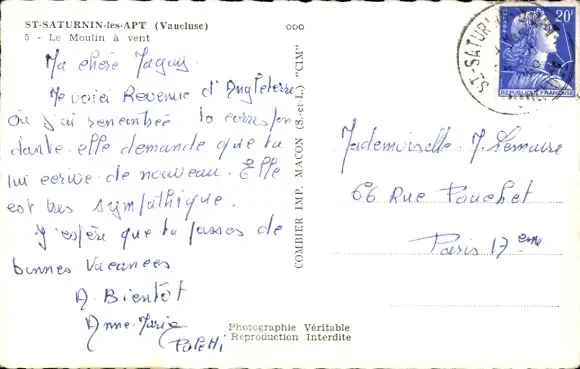 ST-SATURNIN-les-APT (Vaucluse)
5 - Le Moulin à vent
Ma chère Jacquy
Me voici Revenue d'Angleterre
Où j'ai rencontrée ta correspon
dante elle demande que tu
lui ecrive de nouveau. Elle
est très sympathique.
J'espère que tu passes de
bonnes vacances
A Bientôt
Anne-Marie
COMBIER IMP. MACON (S.-et-L.) "CIM"
20F
POSTES
REPUBLIQUE FRANÇAISE
ST-SATUR
Mademoiselle J. Lemaire
66 Rue Pouchet
Paris 17eme
Photographie Véritable
Reproduction Interdite